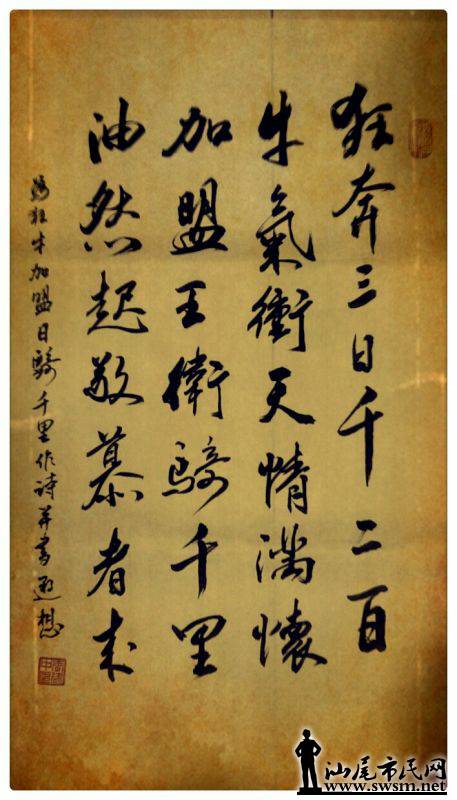 狂奔三日千二百
牛氣衝天情滿懷
加盟王衛騎千里
油然起敬慕者来
為狂牛加盟日騎千里作詩并書遐想
汕尾市民网
www.swsm.net